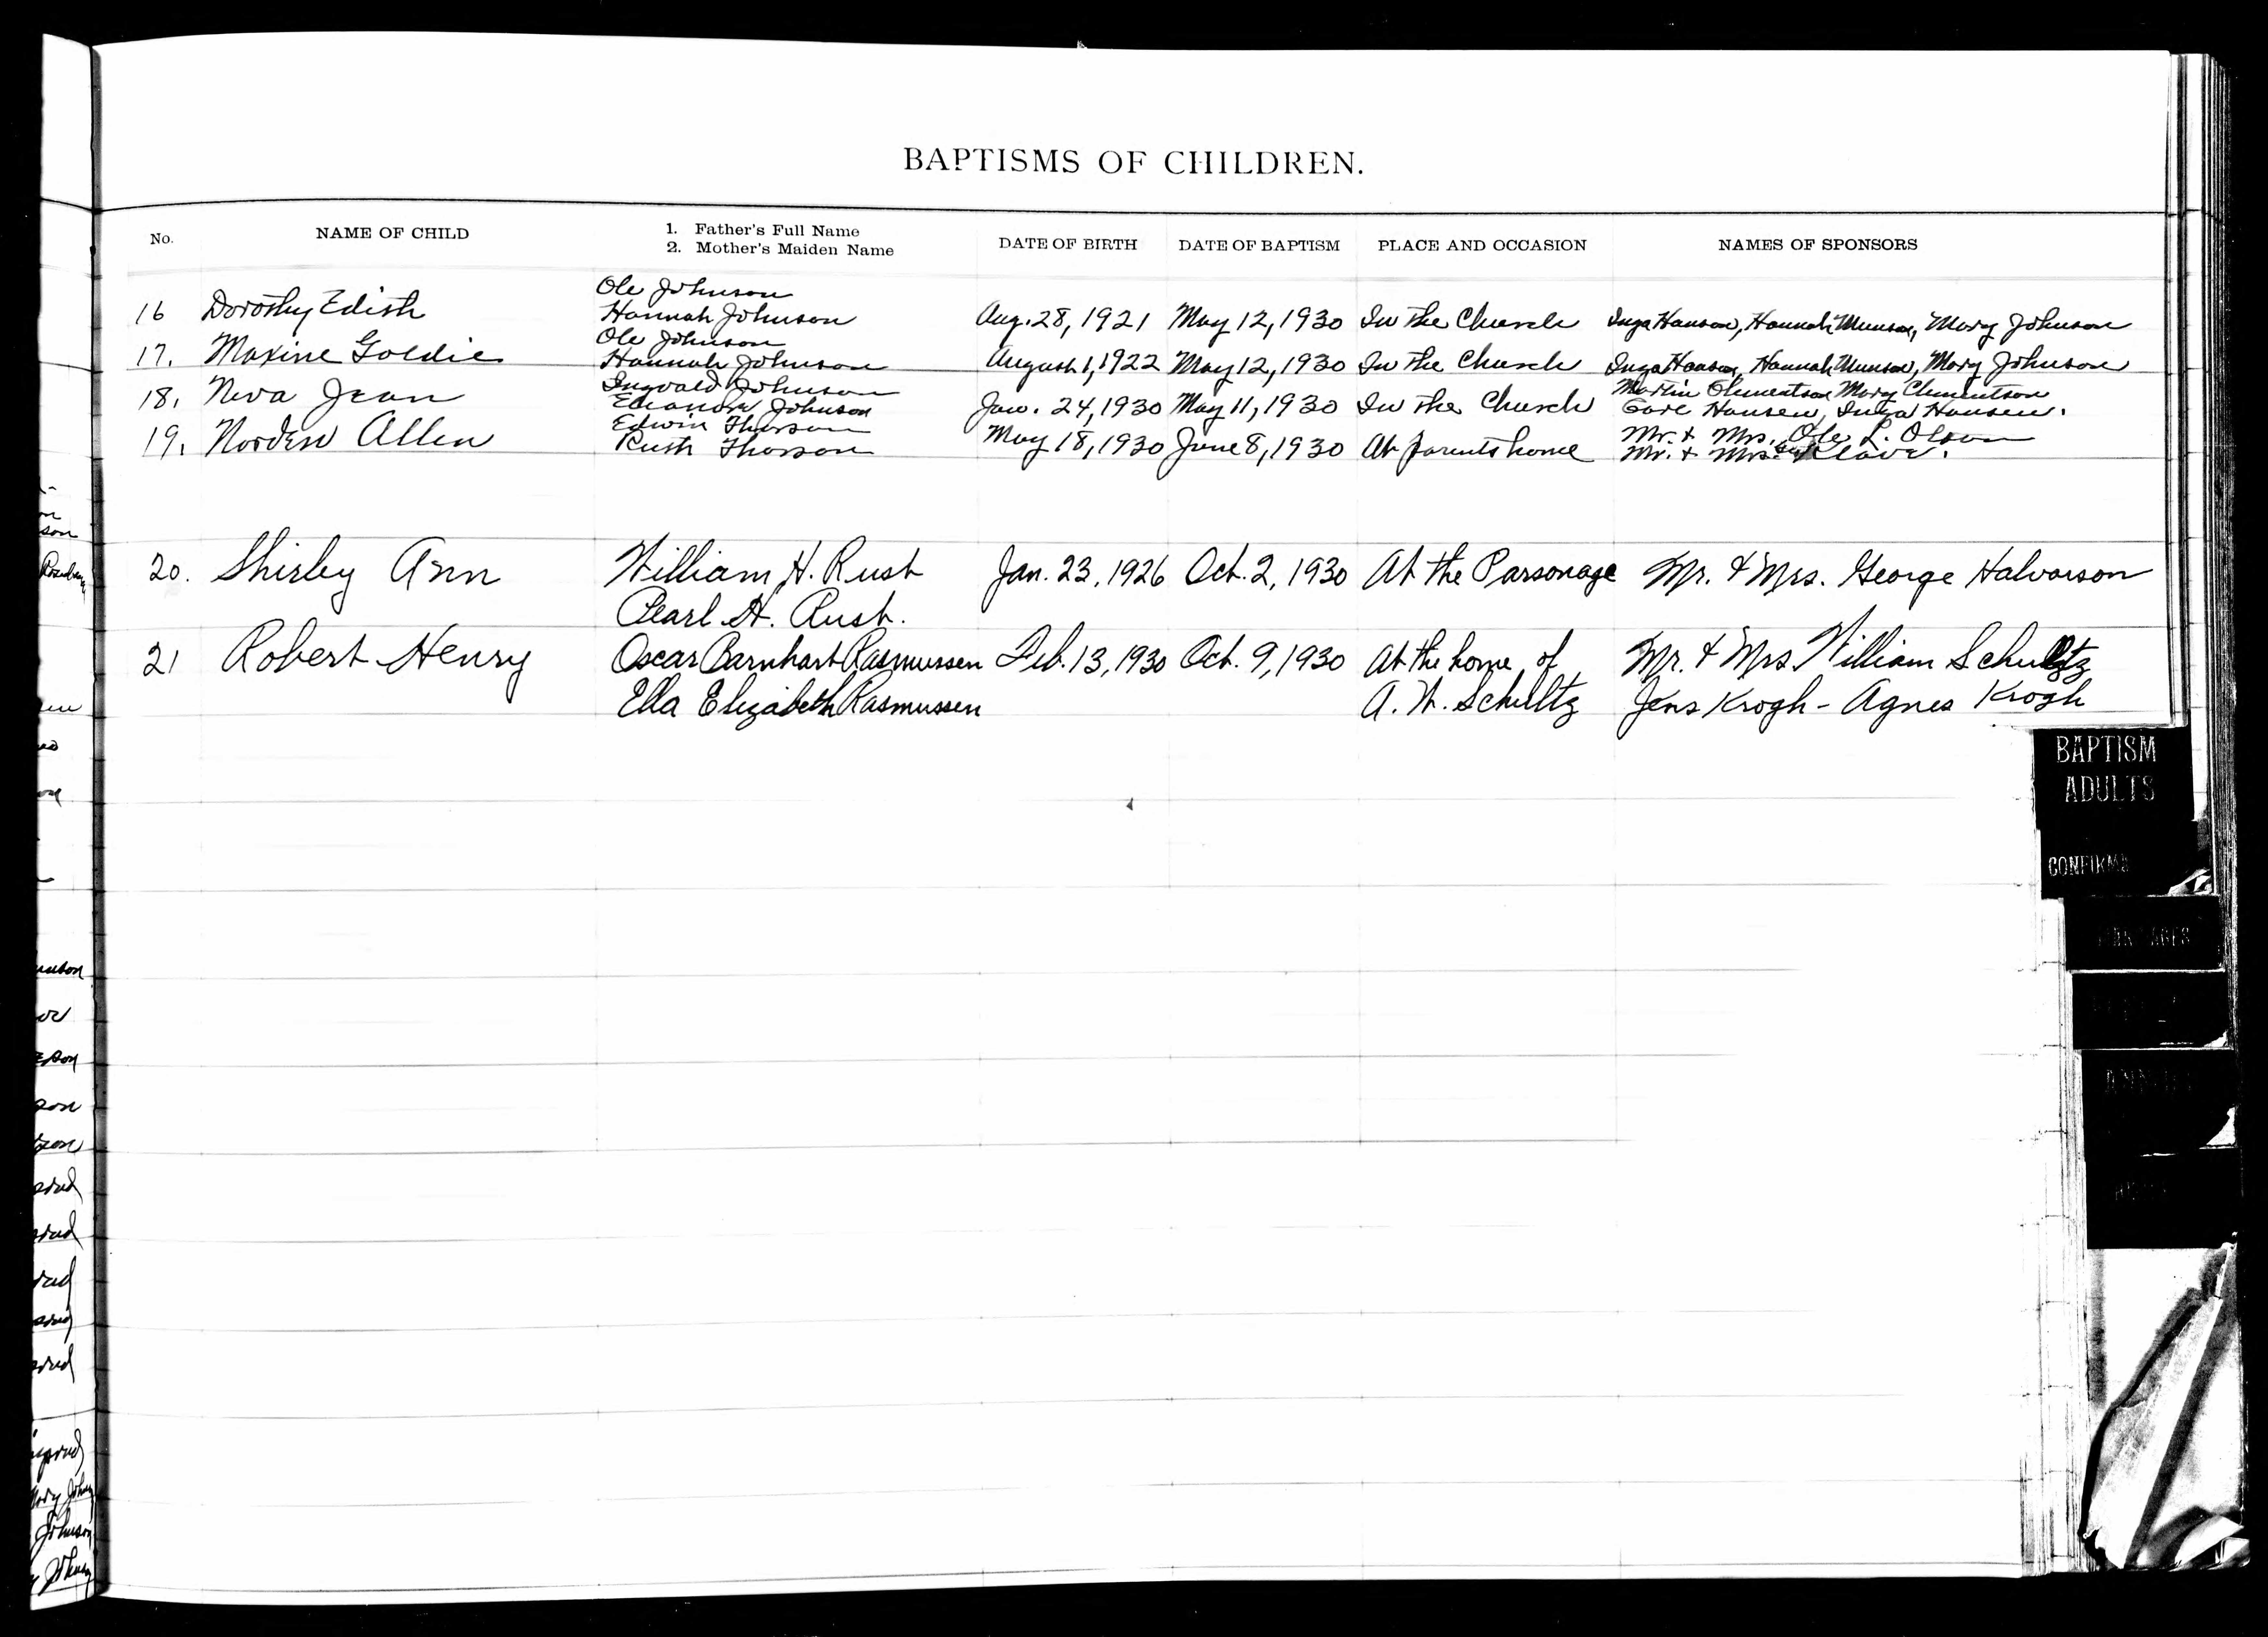 BAPTISMS OF CHILDREN.
No. NAME OF CHILD 1. Father's Full Name 2. Mother's Maiden Name DATE OF BIRTH DATE OF BAPTISM PLACE AND OCCASION NAMES OF SPONSORS
Ole Johnson
16 Dorothy Edith Hannah Johnson Aug. 28, 1921 May 12, 1930 In the Church Inga Hanson, Hannah Munson, Mary Johnson
Ole Johnson
17. Maxine Goldie Hannah Johnson August 1, 1922 May 12, 1930 In the Church Inga Hanson, Hannah Munson, Mary Johnson
Ingvald Johnson Martin Clementson Mary Clementson
18. Neva Jean Eleanora Johnson Jan. 24, 1930 May 11, 1930 In the Church Hansen, Inga Hansen.
Edwin Thorson Mr. & Mrs. Ole L. Olson
19. Norden Allen Ruth Thorson May 18, 1930 June 8, 1930 At parents home Mr. & Mrs. Klove.
20. Shirley Ann William H. Rust Jan. 23, 1926 Oct. 2, 1930 At the Parsonage Mr. & Mrs. George Halvorson
Pearl H. Rust.
21 Robert Henry Oscar Barnhart Rasmussen Feb. 13, 1930 Oct. 9, 1930 At the home of Mr. & Mrs. William Schultz
Ella Elizabeth Rasmussen A. W. Schultz Jens Krogh - Agnes Krogh
BAPTISM
ADULTS
son
Johnson